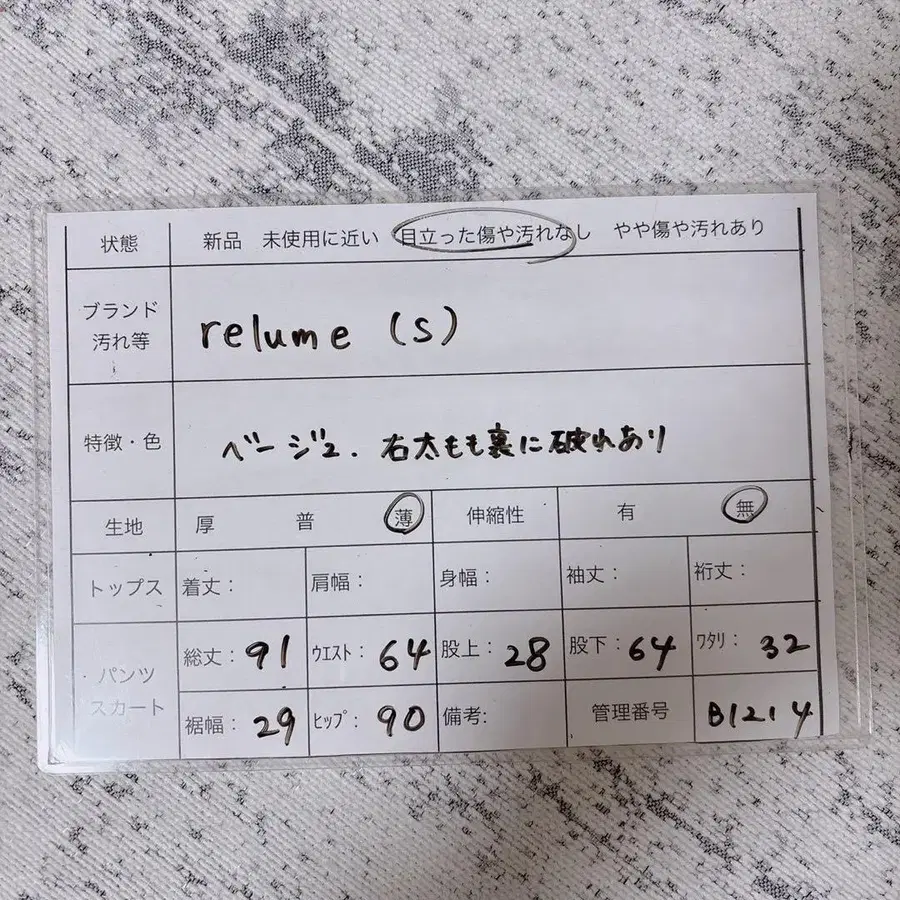 状態 新品 未使用に近い 目立った傷や汚れなし やや傷や汚れあり
ブランド
汚れ等
relume (S)
特徴・色
ベージュ. 右太もも裏に破れあり
生地 厚 普 薄 伸縮性 有 無
トップス 着丈: 肩幅: 身幅: 袖丈: 裄丈:
パンツ
スカート
総丈: 91 ウエスト: 64 股上: 28 股下: 64 ワタリ: 32
裾幅: 29 ヒップ: 90 備考: 管理番号 B1214